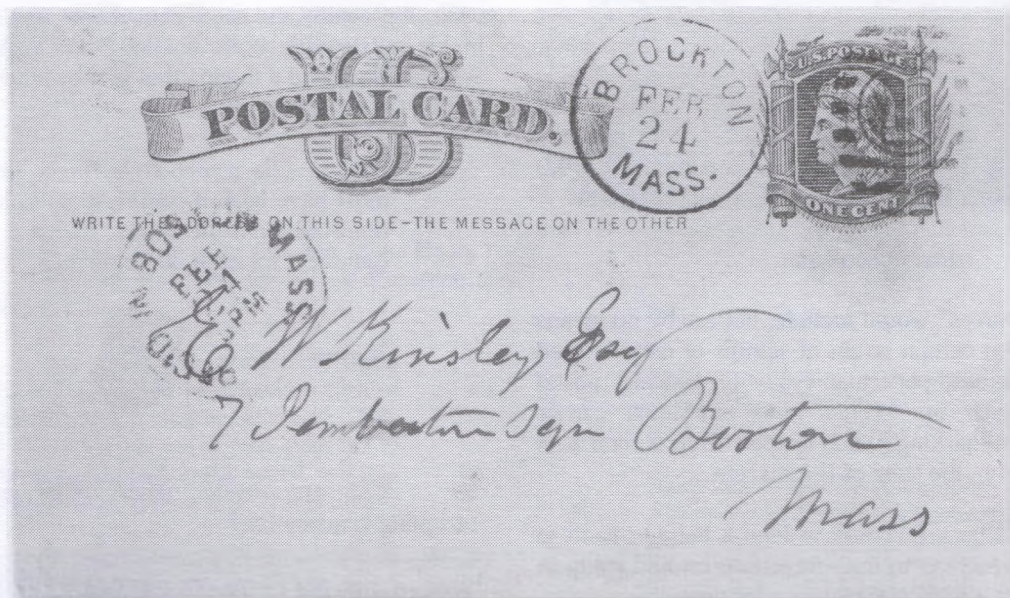 US
POSTAL CARD.
BROCKTON
FEB
24
MASS.
U.S. POSTAGE
ONE CENT
WRITE THE ADDRESS ON THIS SIDE-THE MESSAGE ON THE OTHER
BOSTON MASS.
FEB
E W Kinsley Esq
7 Pemberton Sqr Boston
Mass